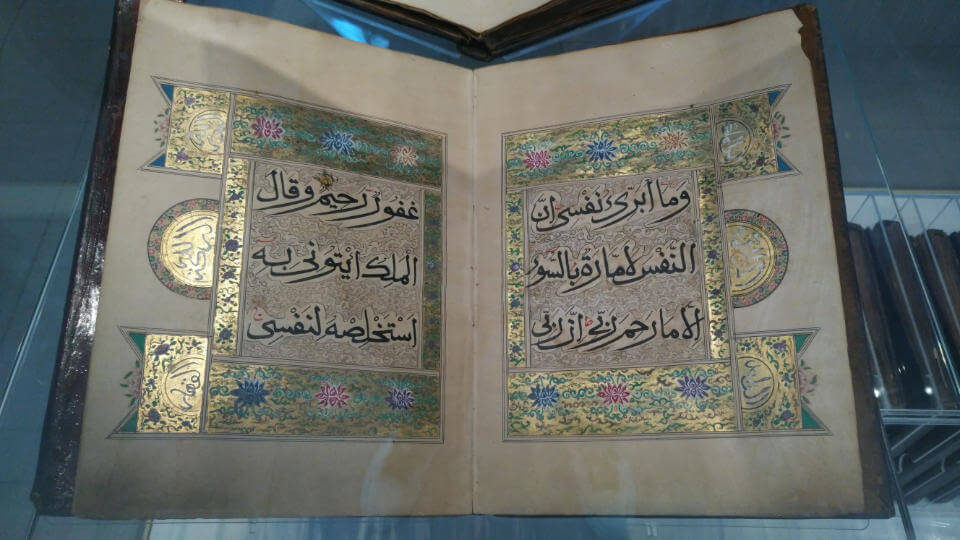 وما أبرئ نفسى انّ
النّفس لامارة بالسوء
الا ما رحم ربى انّ ربى
غفور رحيم وقال
الملك ايتونى به
استخلصه لنفسى